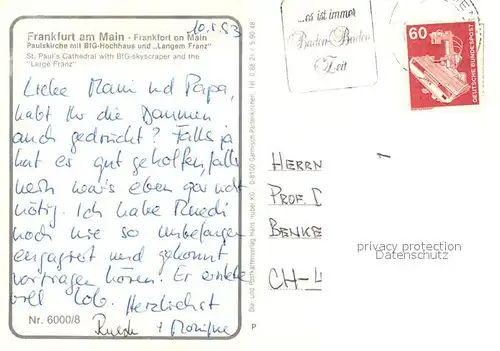 10.8.83
Frankfurt am Main - Frankfort on Main
Paulskirche mit BfG-Hochhaus und „Langem Franz“
St. Paul's Cathedral with BfG-skyscraper and the
"Large Franz"
Liebe Mami und Papa,
habt Ihr die Daumen
auch gedrückt? Falls ja
hat es gut geholfen, falls
nein war's eben gar nicht
nötig. Ich habe Ruedi
noch nie so unbefangen
engagiert und gekonnt
vortragen hören. Er erntete
viel Lob. Herzlichst
Ruedi + Monique
Nr. 6000/8
...es ist immer
Baden-Baden
Zeit
60
DEUTSCHE BUNDESPOST
HERRN
PROF.
BENKE
CH-4
privacy protection
Datenschutz
P